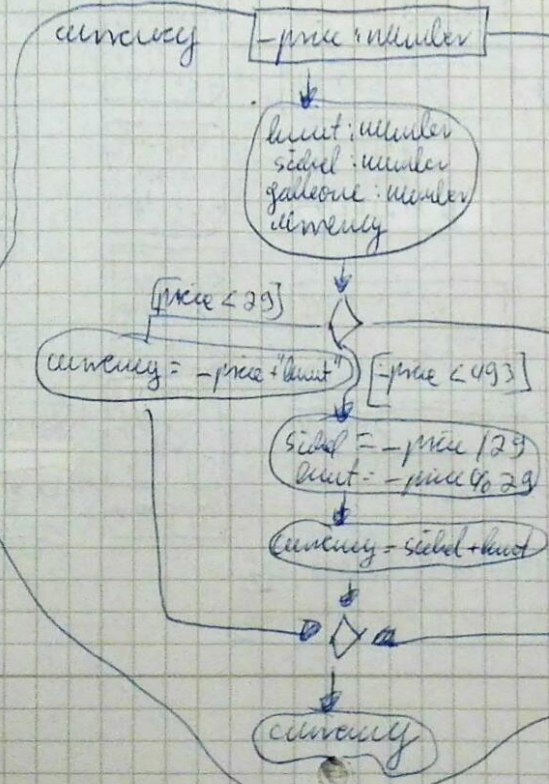 currency
_price : number
knut : number
sickel : number
galleone : number
currency
[price < 29]
currency = _price + "knut"
[_price < 493]
sickel = _price / 29
knut = _price % 29
currency = sickel + knut
currency